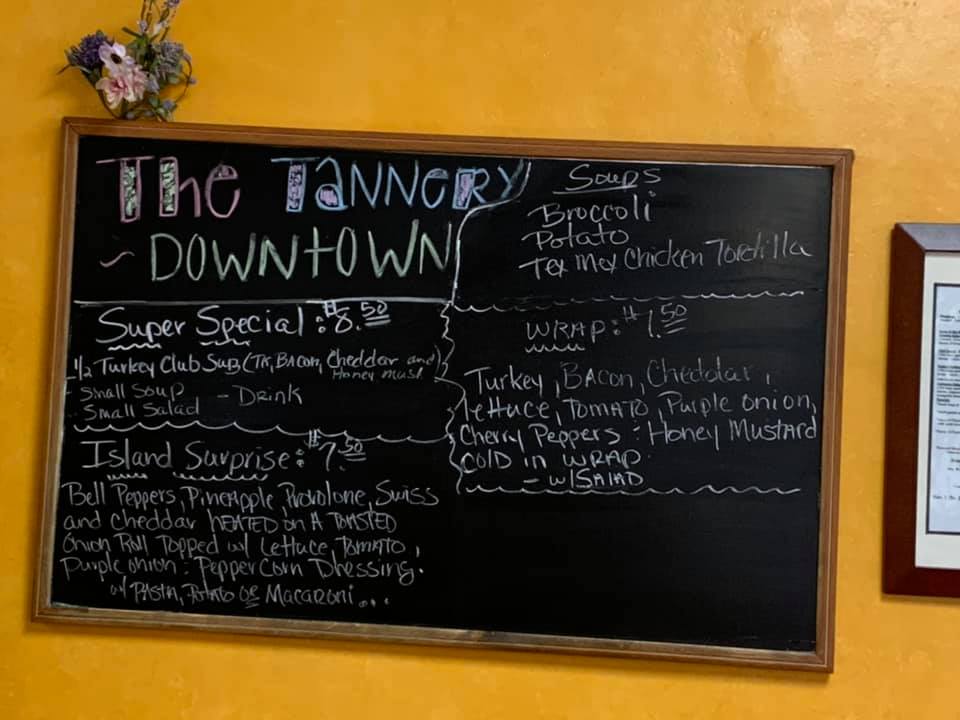 The TANNERY
~ DOWNTOWN
Super Special : $8.50
1/2 Turkey Club Sub (TK, BACON, Cheddar and
Honey Must.)
Small Soup
- Drink
Small Salad
Island Surprise : $7.50
Bell Peppers, Pineapple, Provolone, Swiss
and cheddar HEATED on A TOASTED
Onion Roll Topped w/ Lettuce, TOMATO,
Purple onion : PepperCorn Dressing.
w/ PASTA, Potato or Macaroni...
Soups
Broccoli
Potato
Tex Mex Chicken Tortilla
WRAP : $7.50
Turkey, BACON, Cheddar,
lettuce, TOMATO, Purple onion,
Cherry Peppers : Honey Mustard
COLD in WRAP.
- w/ SALAD